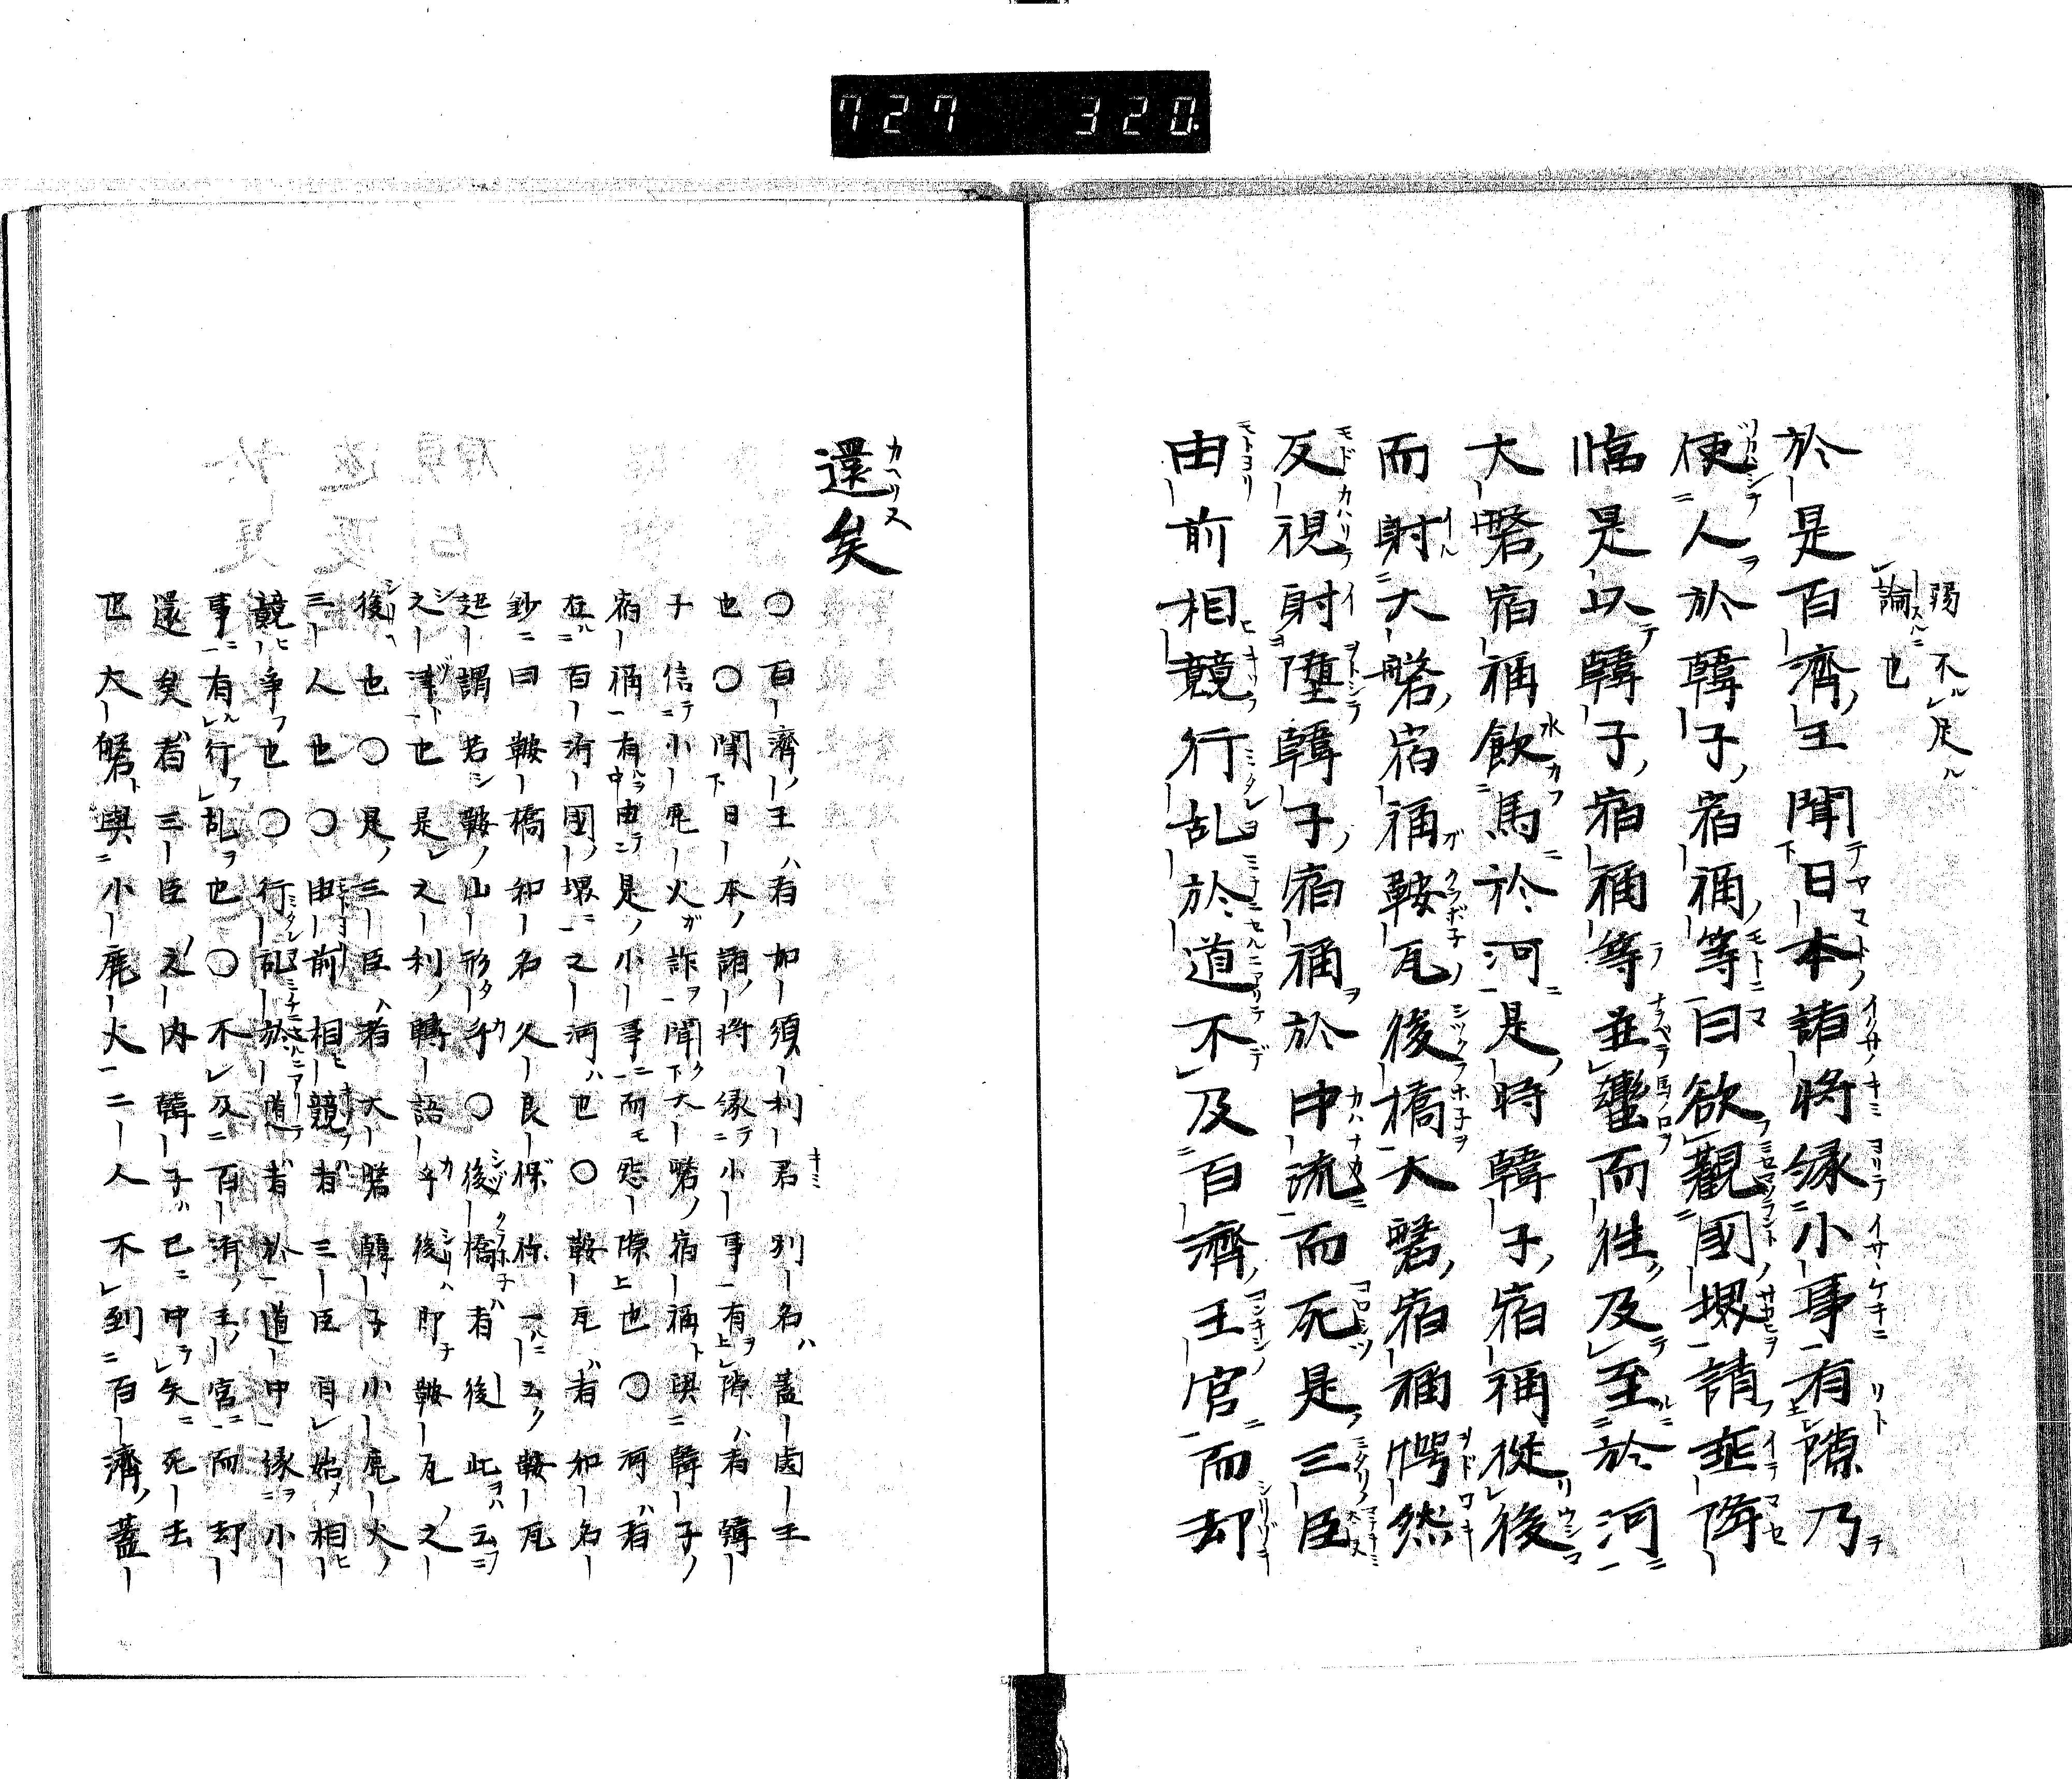 727 320.
弱不足
論也
於是百濟王聞日本諸将縁小事有隙乃
使人於韓子宿祢等曰欲觀國堺請垂降
臨是以韓子宿祢等並轡而徃及至於河
大磐宿祢飲馬於河是時韓子宿祢從後
而射大磐宿祢鞍瓦後橋大磐宿祢愕然
反視射墮韓子宿祢於中流而死是三臣
由前相競行乱於道不及百濟王宮而却
還矣
○百濟王者加須利君別名蓋鹵王
也○聞日本諸将縁小事有隙者韓
子信小鹿火詐聞大磐宿祢與韓子
宿祢有由是小事而怨隙也○河者
在百済國堺之河也○鞍瓦者和名
鈔曰鞍橋和名久良保祢一云鞍瓦
起謂若鞍山形乎○後橋者後此云
之津也是之利轉語乎後即鞍瓦之
後也○是三臣者大磐韓子小鹿火
三人也○由前相競者三臣自始相
競争也○行乱於道者於道中縁小
事有行乱也○不及百済王宮而却
還矣者三臣之内韓子已中矢死去
也大磐與小鹿火二人不到百濟蓋